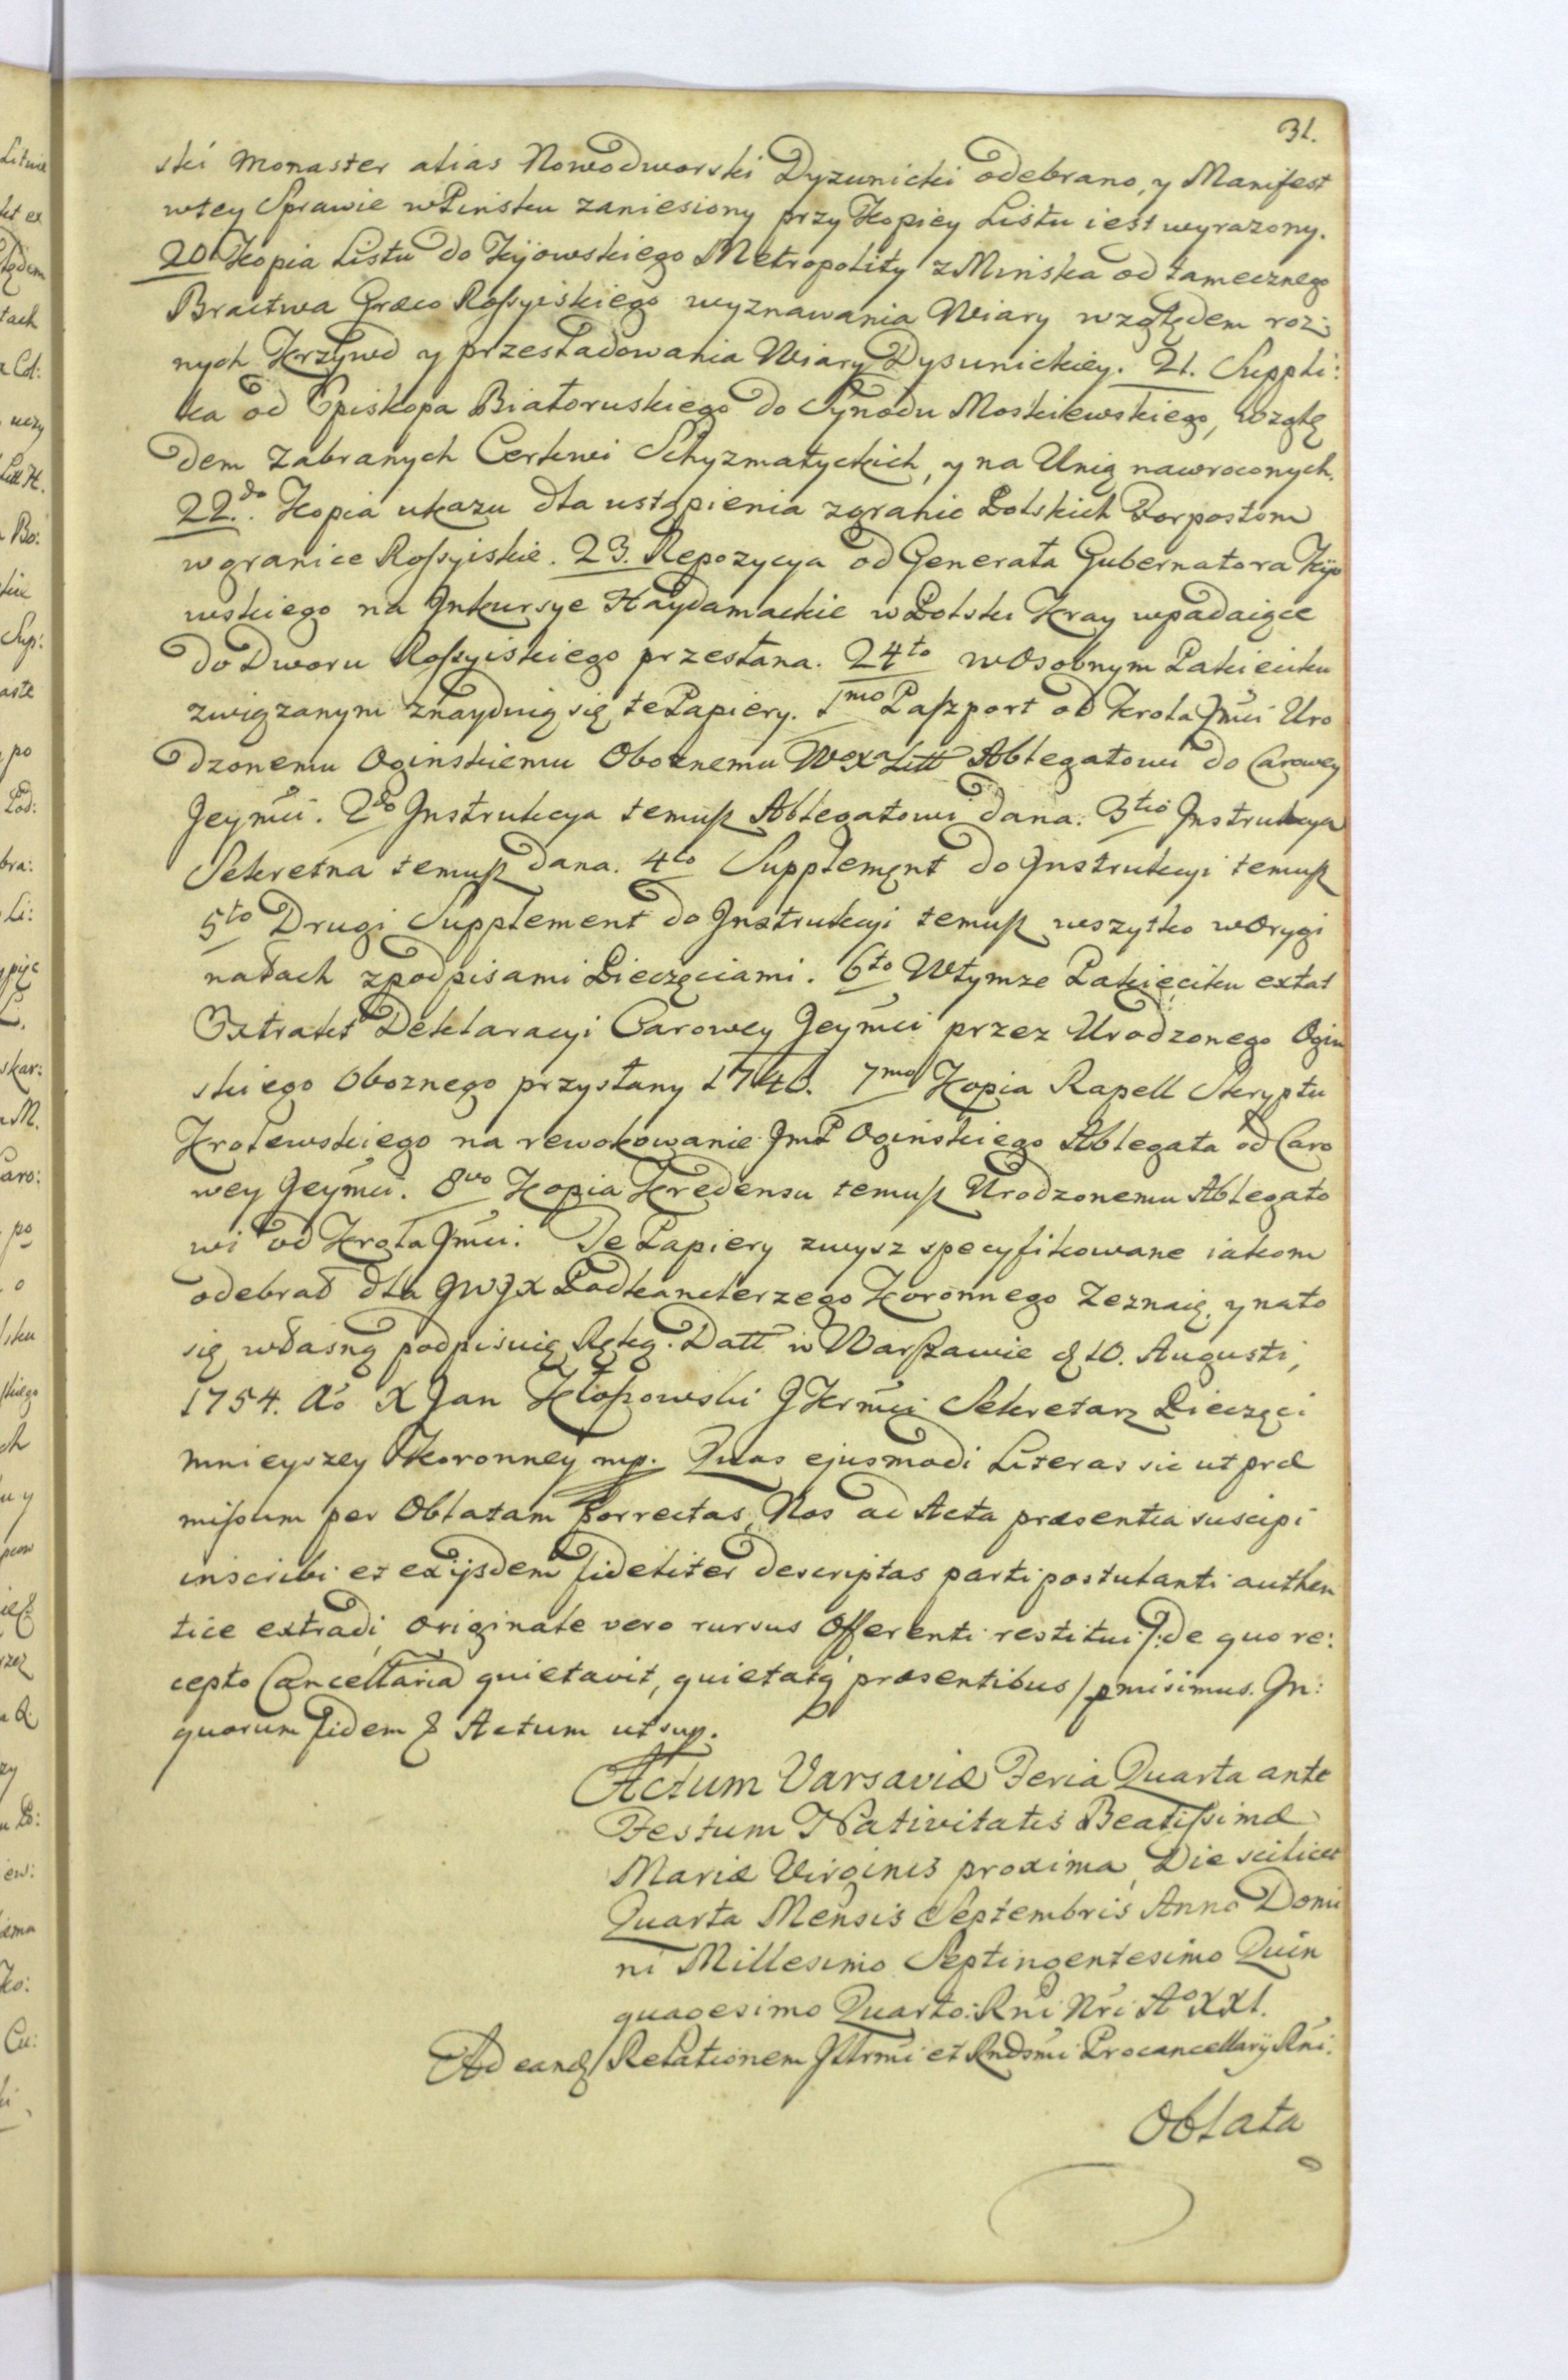 31.
ski Monaster alias Nowodworski Dyzunicki odebrano, y Manifest
wtey Sprawie wPinsku zaniesiony przy Kopiey Listu iest wyrazony.
20. Kopia Listu do Kijowskiego Metropolity z Minska od tamecznego
Bractwa Græco Rossyiskiego wyznawania Wiary względem roż:
nych Krzywd y prześladowania Wiary Dysunickiey. 21. Suppli:
ka od Episkopa Białoruskiego do Synodu Moskiewskiego, wzglę
dem zabranych Cerkwi Schyzmatyckich, y na Unią nawroconych.
22do. Kopia ukazu dla ustąpienia zgranic Polskich Forpostom
wgranice Rossyiskie. 23. Repozycya od Generała Gubernatora Kijo
wskiego na Inkursye Haydamackie wPolski Kray wpadaiące
do Dworu Rossyiskiego przesłana. 24to wOsobnym Pakieciku
związanym znayduią się te Papiery. 1mo Paszport od Krola Jmci Uro
dzonemu Oginskiemu Oboznemu WoXa Litt Ablegatowi do Carowey
Jeymci. 2do Instrukcya temuß Ablegatowi dana. 3tio Instrukcya
Sekretna temuß dana. 4to Supplement do Instrukcyi temuß
5to Drugi Supplement do Instrukcyi temuß wszytko wOrygi
nałach zpodpisami Pieczęciami. 6to Wtymże Pakieciku extat
Extrakt Deklaracyi Carowey Jeymci przez Urodzonego Ogin
skiego Oboznego przysłany 1740. 7mo Kopia Rapell Skryptu
Krolewskiego na rewokowanie JmP Oginskiego Ablegata od Caro
wey Jeymci. 8vo Kopia Kredensu temuß Urodzonemu Ablegato
wi od Krola Jmci. Te Papiery zwysz specyfikowane iakom
odebrał dla JWJX Podkanclerzego Koronnego Zeznaię, y nato
się własną podpisuię Ręką. Datt w Warszawie d 10. Augusti,
1754. Ao X Jan Kłossowski JKrmci Sekretarz Pieczęci
mnieyszey Koronney mp. Quas ejusmodi Literas sic ut præ
missum per Oblatam Porrectas, Nos ad Acta præsentia suscipi
inscribi et exijsdem fideliter descriptas parti postulanti authen
tice extradi, originale vero rursus Offerenti restitui /:de quo re:
cepto Cancellaria quietavit, quietatq præsentibus/ pmisimus. In:
quorum fidem & Actum ut sup.
Actum Varsaviæ Feria Quarta ante
Festum Nativitatis Beatissimæ
Mariæ Virginis proxima, Die scilicet
Quarta Mensis Septembris Anno Domi
ni Millesimo Septingentesimo Quin
quagesimo Quarto: Rni Nri Ao XXI.
Ad eand Relationem Jllrmi et Rndsmi Procancellarij Rni:
Oblata